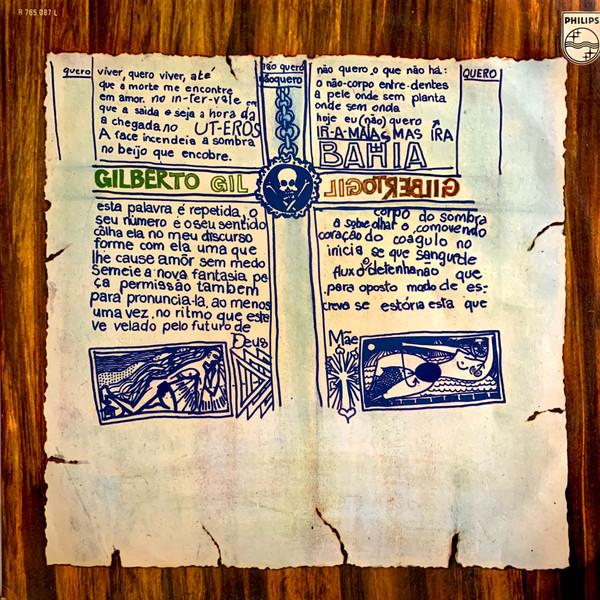 R 765 087 L
PHILIPS
quero
viver, quero viver, até
que a morte me encontre
em amor. no in-ter-vale em
que a saida e seja a hora da
a chegada. no UT-EROS
A face incendeia a sombra
no beijo que encobre.
não quero
nãoquero
não quero o que não há:
o não-corpo entre-dentes
a pele onde sem planta
onde sem onda
hoje eu (não) quero
IR-A-MAIAS MAS IRA
BAHIA
QUERO
GILBERTO GIL
GILBERTO GIL
esta palavra é repetida, o
seu número é o seu sentido
côlha ela no meu discurso
forme com ela uma que
lhe cause amôr sem medo
Semeie a nova fantasia pe
ça permissão tambem
para pronuncia-la, ao menos
uma vez, no ritmo que este
ve velado pelo futuro de
Deus
corpo do sombra
a sobre olhar o comovendo
coração do coagulo no
inicia se que sangue de
fluxo detenha não que
para oposto modo de es-
creva se estória esta que
Mãe